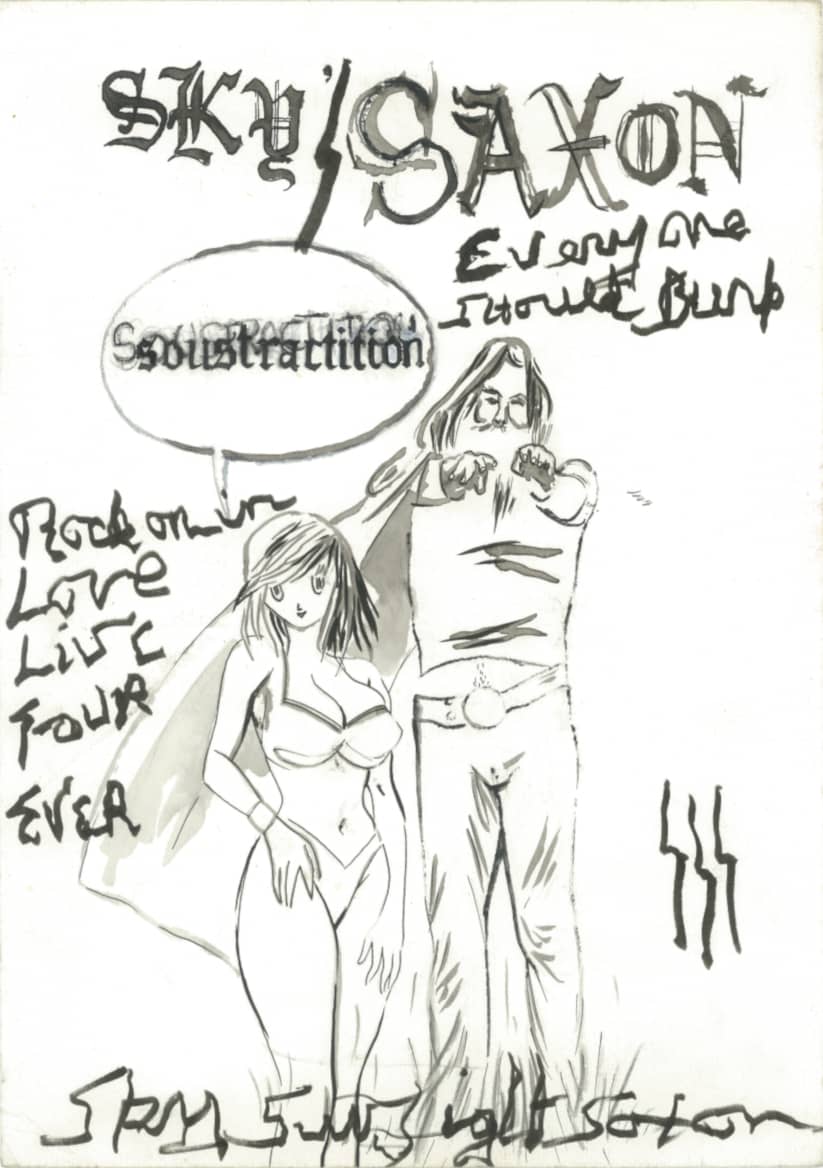 SKY SAXON
Everyone
should Burp
SOUSTRACTITION
soustractition
Rock on in
Love
Live
FOUR
EVER
Sky Sunlight Saxon